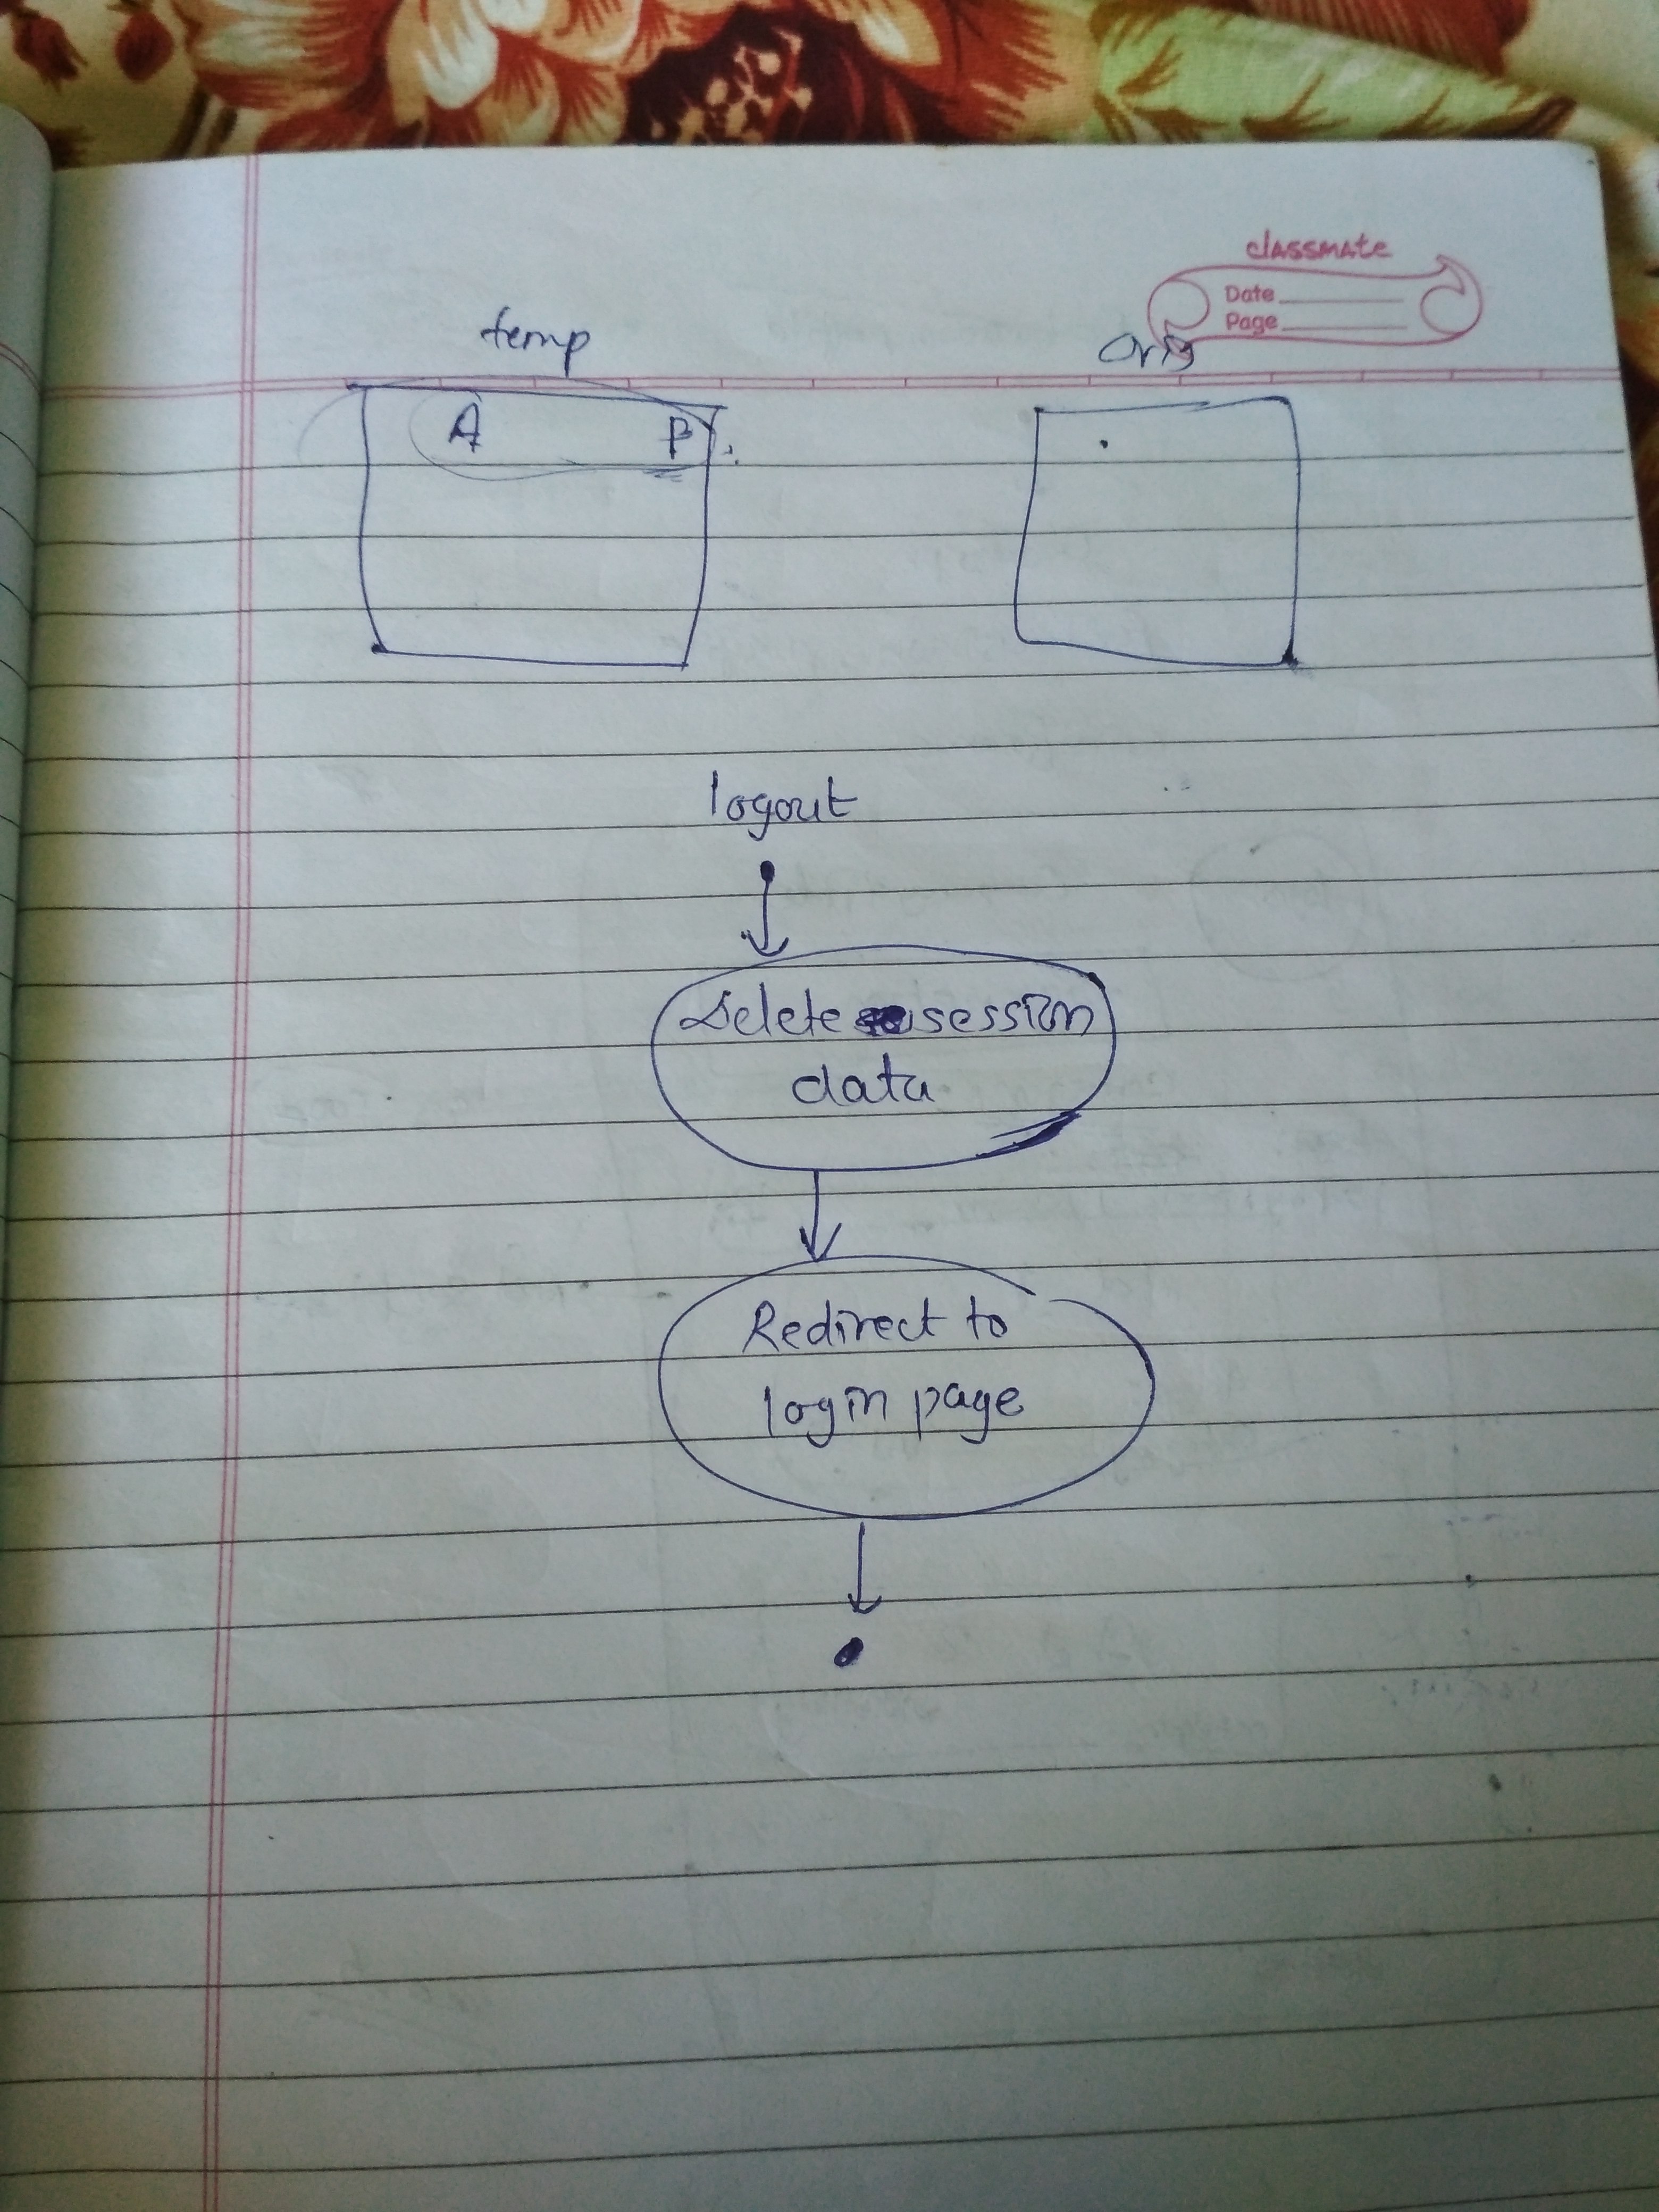 classmate
Date
Page
temp
orig
A P
logout
Delete session
data
Redirect to
login page